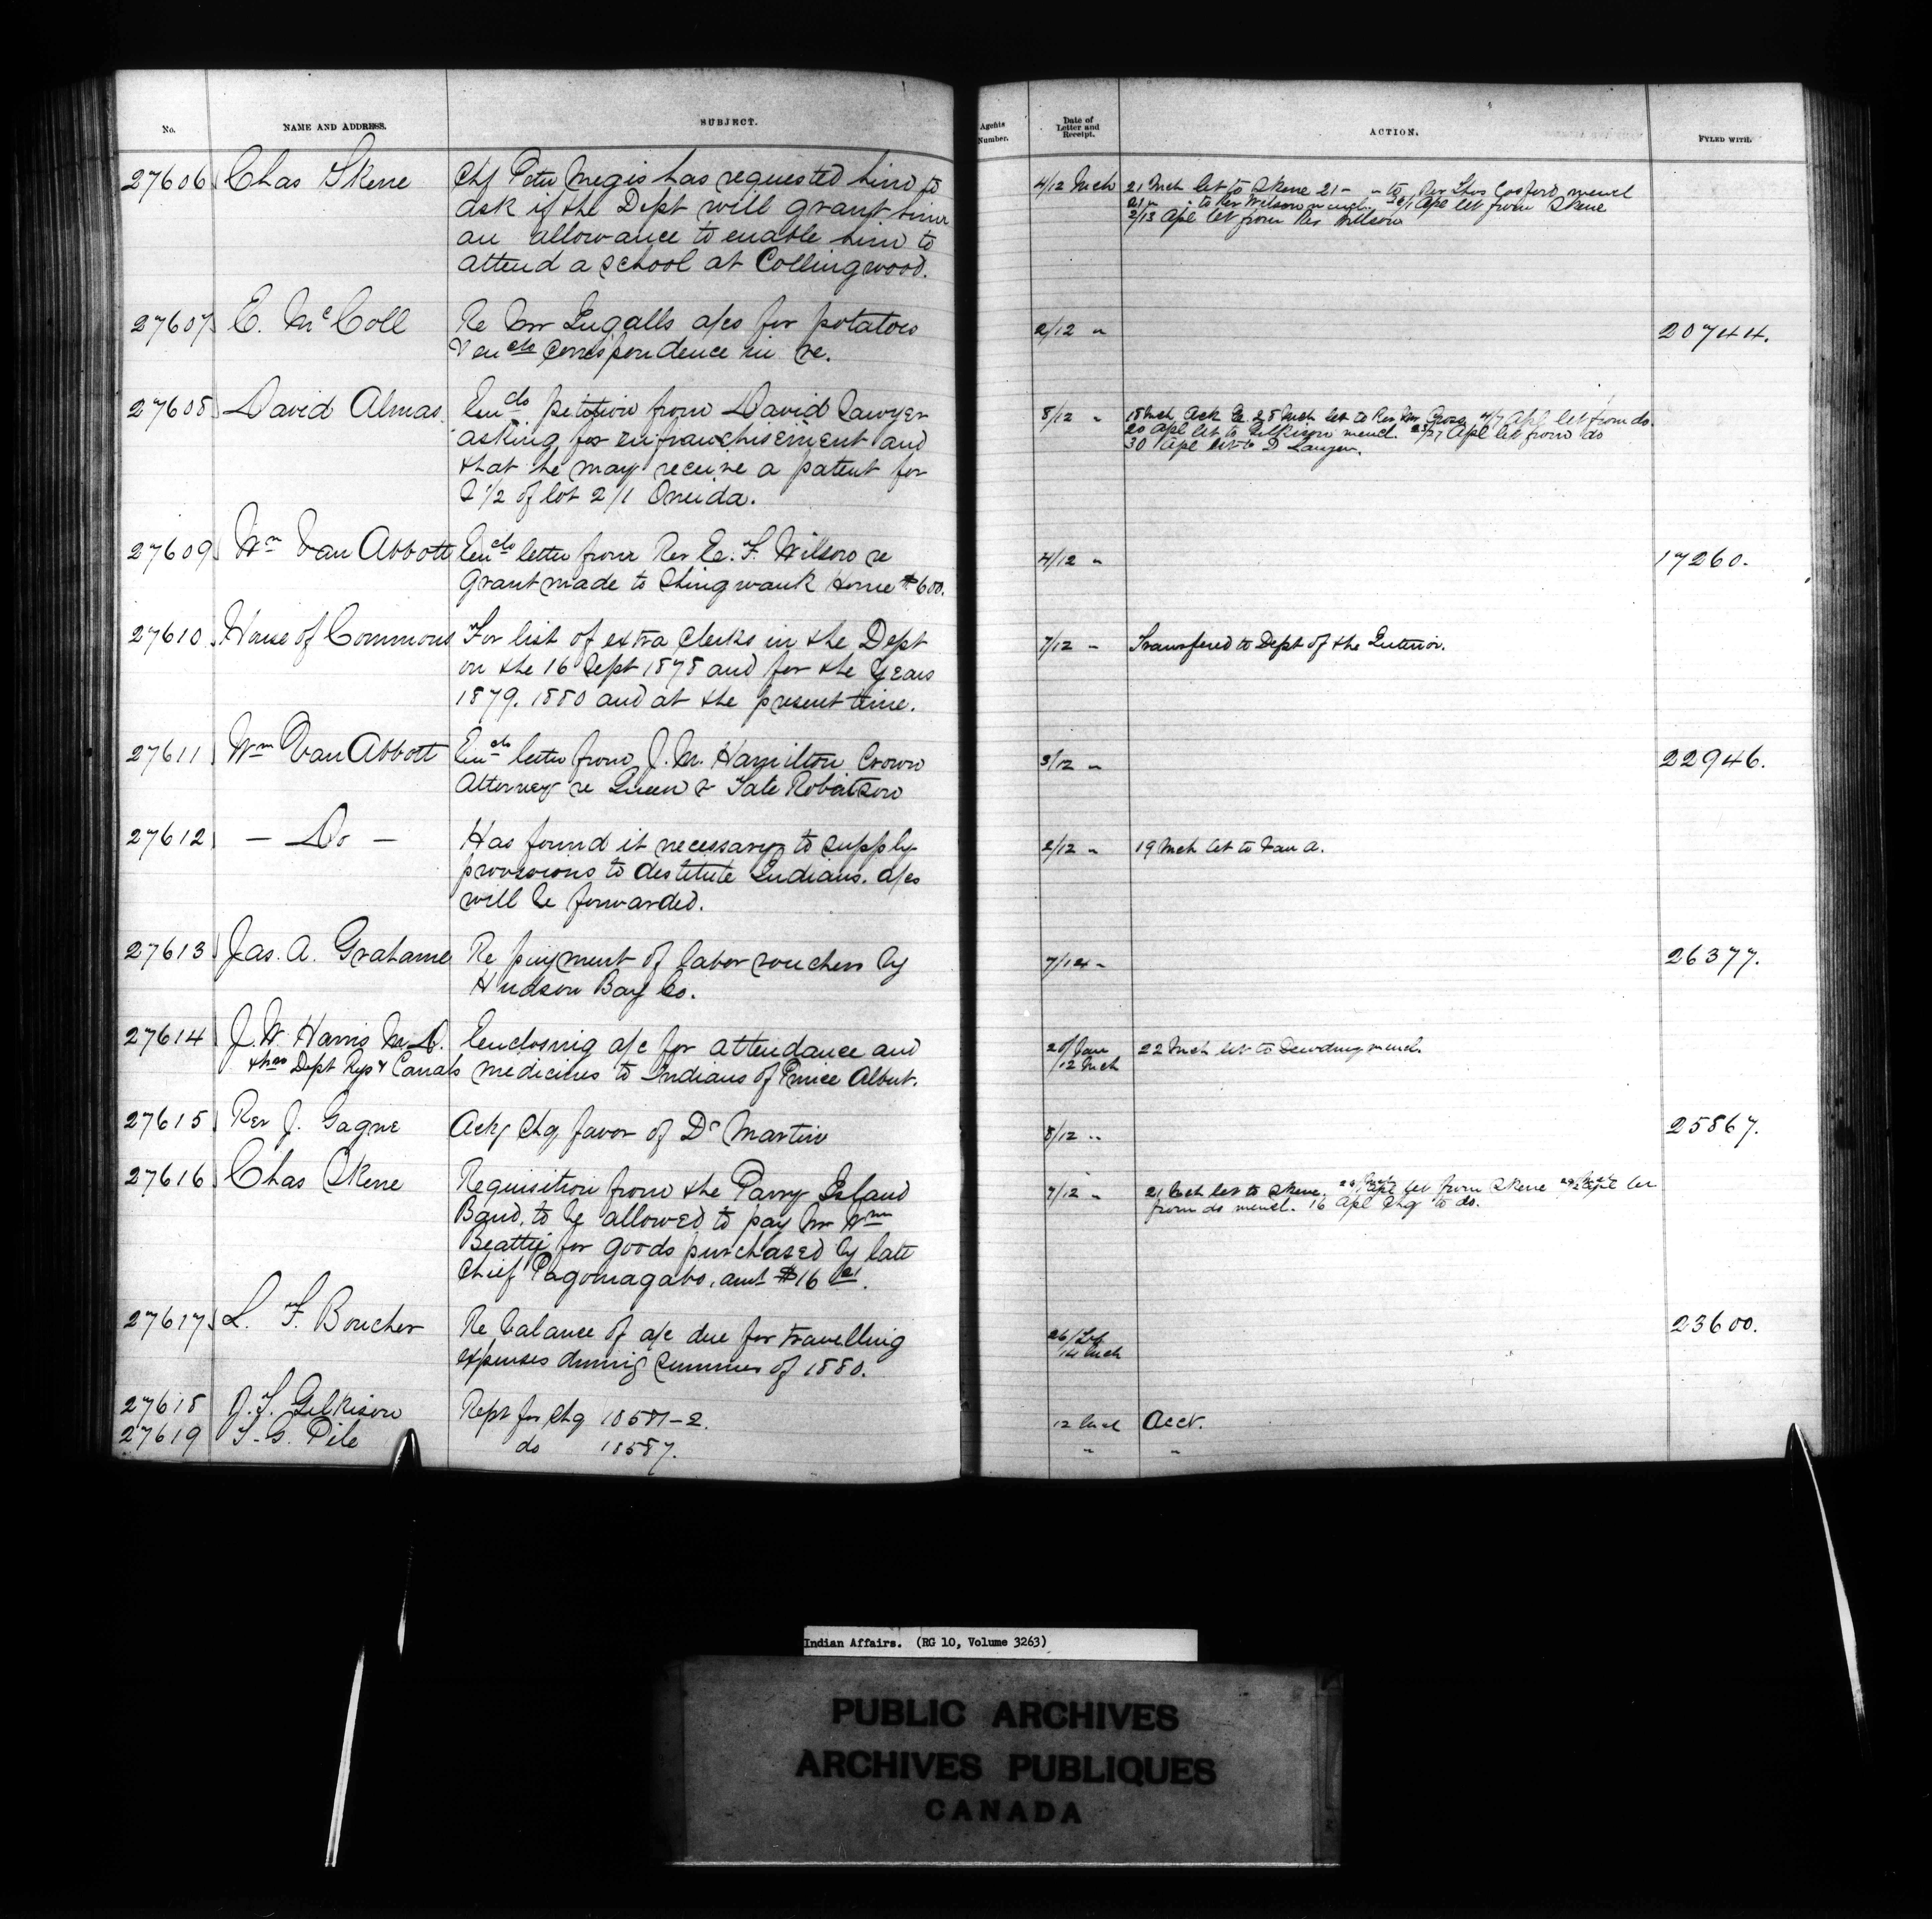 No. NAME AND ADDRESS. SUBJECT. Agents Number. Date of Letter and Receipt. ACTION. FYLED WITH.
27606 Chas Skene Chf Peter Megis has requested him to 4/12 Mch 21 Mch let to Skene 21 - " to Rev Thos Cosford mencl
ask if the Dept will grant him 21 " : to Rev Wilson mencl. Apl let from Skene
an allowance to enable him to 2/13 Apl let from Rev Wilson
attend a school at Collingwood.
27607 E. McColl Re Mr Ingalls a/cs for potatoes 2/12 " 20744.
& encls correspondence in re.
27608 David Almas Encls petition from David Sawyer 8/12 " 18 Mch Ack Ce 28 Mch let to Rev Mr 4/7 Apl let from do.
asking for enfranchisement and 20 Apl let to Gilkison mencl. 23/27 Apl let from do
that he may receive a patent for 30 Apl let to D Sawyer.
S 1/2 of lot 2/1 Oneida.
27609 Wm Van Abbott Encls letter from Rev E. F. Wilson re 4/12 " 17260.
Grant made to Shingwauk Home $600.
27610 House of Commons For list of extra Clerks in the Dept 7/12 " Transfered to Dept of the Interior.
on the 16 Sept 1878 and for the Years
1879. 1880 and at the present time.
27611 Wm Van Abbott Encls letter from J. M. Hamilton Crown 3/12 " 22946.
Attorney re Queen & Tate Robertson
27612 — Do — Has found it necessary to supply 2/12 " 19 Mch let to Van A.
provisions to destitute Indians. a/cs
will be forwarded.
27613 Jas. A. Grahame Re payment of labor vouchers by 7/14 " 26377.
Hudson Bay Co.
27614 J. W. Harris M.D. Enclosing a/c for attendance and 20/Jan 22 Mch let to Dewdney mencl.
thro Dept Rys & Canals medicines to Indians of Prince Albert. /12 Mch
27615 Rev J. Gagne Ackg Chq favor of Dr Martin 8/12 " 25867.
27616 Chas Skene Requisition from the Parry Island 7/12 " 21 Mch let to Skene. Apl let from Skene Apl let
Band, to be allowed to pay Mr Wm from do mencl. 16 Apl Chq to do.
Beattie for goods purchased by late
Chief Pagomagabo, amt $16
27617 L. F. Boucher Re balance of a/c due for travelling 26/Feb 23600.
expenses during Summer of 1880. /14 Mch
27618 J. T. Gilkison Rept for Chq 18581-2. 12 Mch Acct.
27619 T. G. Pile do 18587. " "
Indian Affairs. (RG 10, Volume 3263)
PUBLIC ARCHIVES
ARCHIVES PUBLIQUES
CANADA